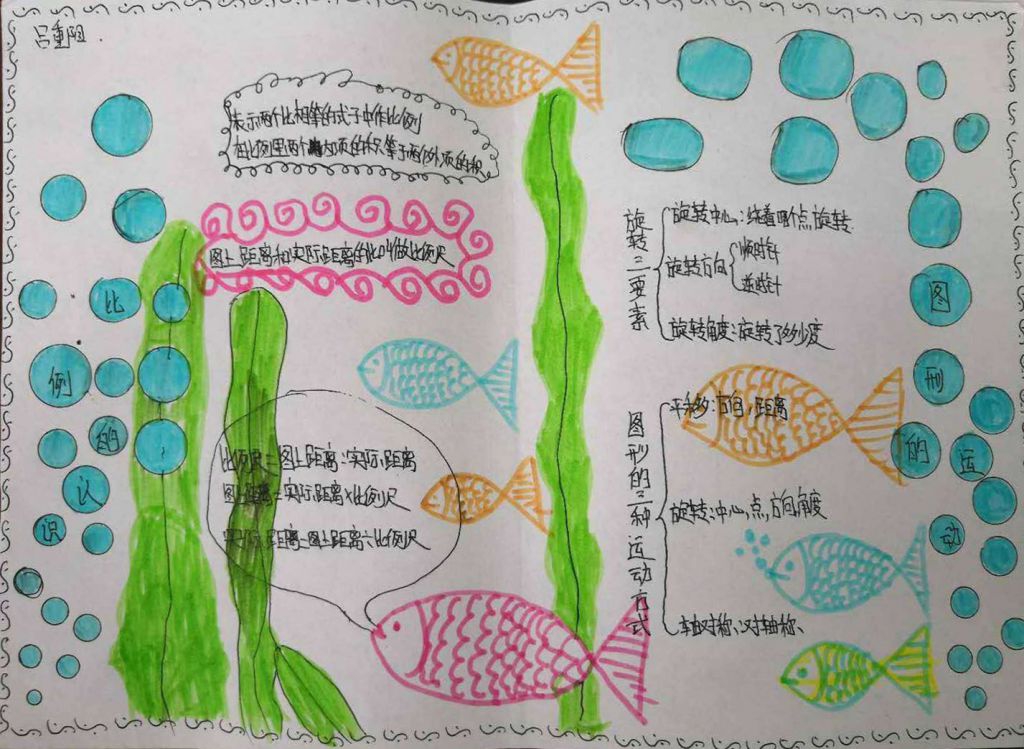 吕重阳
表示两个比相等的式子叫作比例
在比例里两个内项的积等于两个外项的积
图上距离和实际距离的比叫做比例尺
比例的认识
比例尺=图上距离:实际距离
图上距离=实际距离×比例尺
实际距离=图上距离÷比例尺
旋转三要素
旋转中心:绕着哪个点旋转
旋转方向
顺时针
逆时针
旋转角度:旋转了多少度
图形的运动
图形的三种运动方式
平移:方向,距离
旋转:中心点,方向,角度
轴对称:对轴称